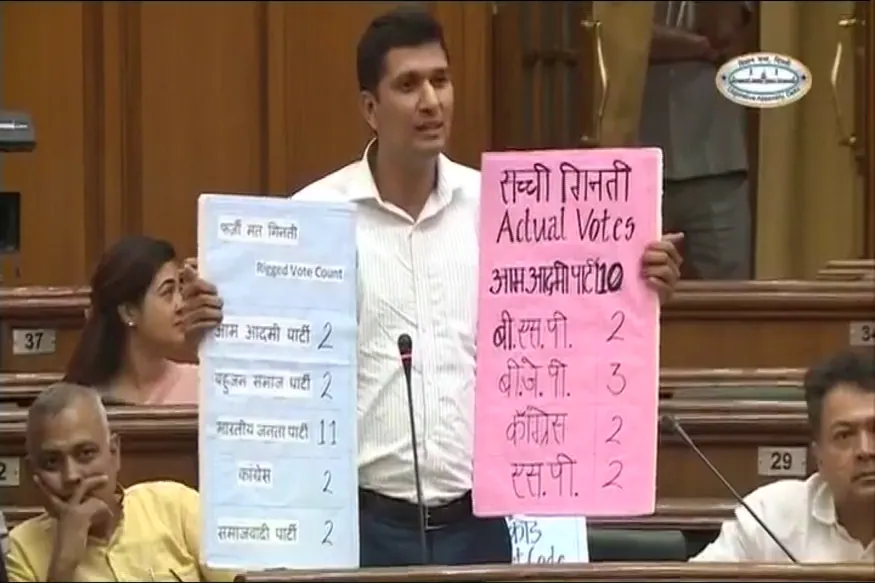 विधान सभा, दिल्ली
Legislative Assembly, Delhi
फर्ज़ी मत गिनती
Rigged Vote Count
आम आदमी पार्टी 2
बहुजन समाज पार्टी 2
भारतीय जनता पार्टी 11
कांग्रेस 2
समाजवादी पार्टी 2
सच्ची गिनती
Actual Votes
आम आदमी पार्टी 10
बी.एस.पी. 2
बी.जे.पी. 3
कॉंग्रेस 2
एस.पी. 2
Code
37
34
2
29